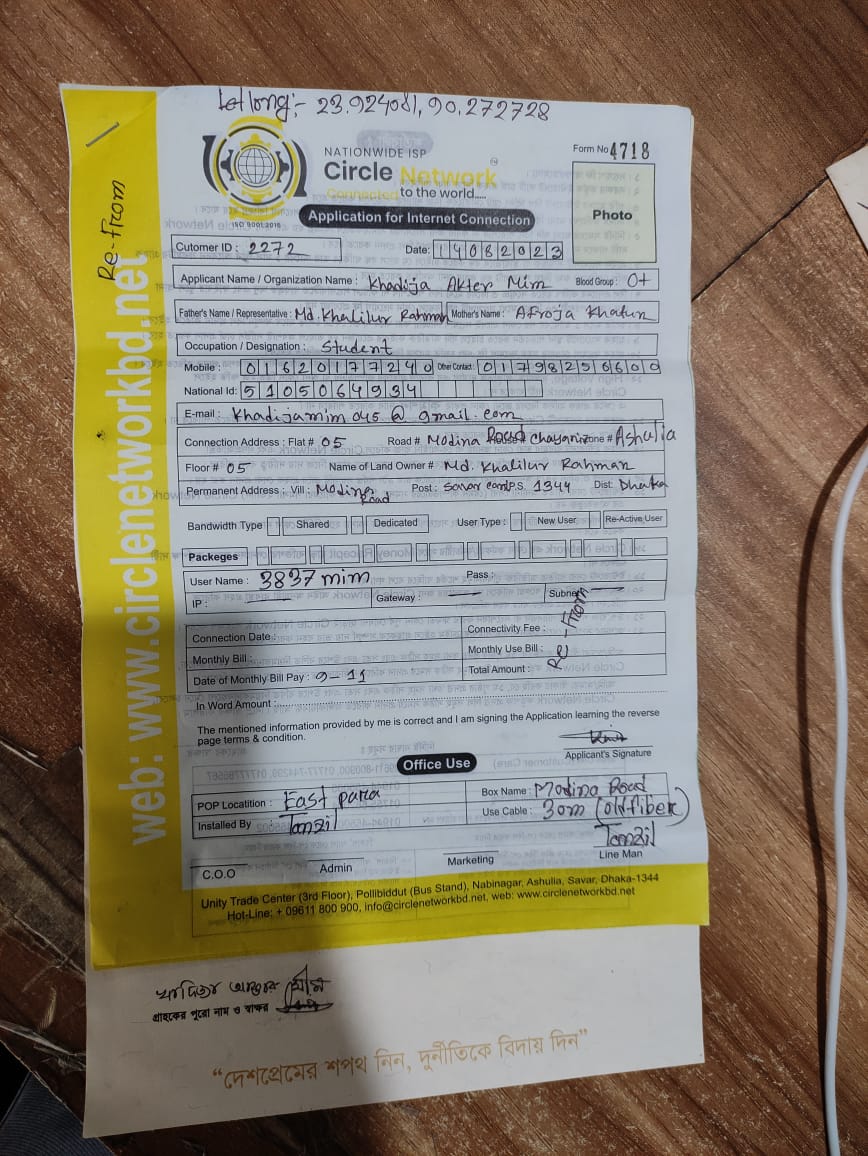 Let long:- 23.924081, 90.272728
NATIONWIDE ISP
Circle Network
Connected to the world....
ISO 9001:2015
Form No 4718
Photo
Application for Internet Connection
Re-From
web: www.circlenetworkbd.net
Cutomer ID : 2272 Date: 14082023
Applicant Name / Organization Name : Khadija Akter Mim Blood Group : O+
Father's Name / Representative : Md. Khalilur Rahman Mother's Name : Afroja Khatun
Occupation / Designation : Student
Mobile : 01620177240 Other Contact : 01798256600
National Id: 5105064934
E-mail : khadijamim045@gmail.com
Connection Address : Flat # 05 Road # Modina Road Zone # Ashulia
Floor # 05 Name of Land Owner # Md. Khalilur Rahman
Permanent Address : Vill : Modina Road Post : Savar cant P.S. 1344 Dist: Dhaka
Bandwidth Type Shared Dedicated User Type : New User Re-Active User
Packeges
User Name : 3837mim Pass :
IP : Gateway : Subnet
Connection Date : Connectivity Fee :
Monthly Bill : Monthly Use Bill :
Date of Monthly Bill Pay : 9-11 Total Amount :
Re-From
In Word Amount :
The mentioned information provided by me is correct and I am signing the Application learning the reverse
page terms & condition.
Applicant's Signature
Office Use
POP Locatition : East para Box Name : Modina Road
Installed By : Tanzil Use Cable : 30m (old fiber)
Tanzil
C.O.O Admin Marketing Line Man
Unity Trade Center (3rd Floor), Pollibiddut (Bus Stand), Nabinagar, Ashulia, Savar, Dhaka-1344
Hot-Line: + 09611 800 900, info@circlenetworkbd.net, web: www.circlenetworkbd.net
খাদিজা আক্তার মীম
গ্রাহকের পুরো নাম ও স্বাক্ষর
“দেশপ্রেমের শপথ নিন, দুর্নীতিকে বিদায় দিন”